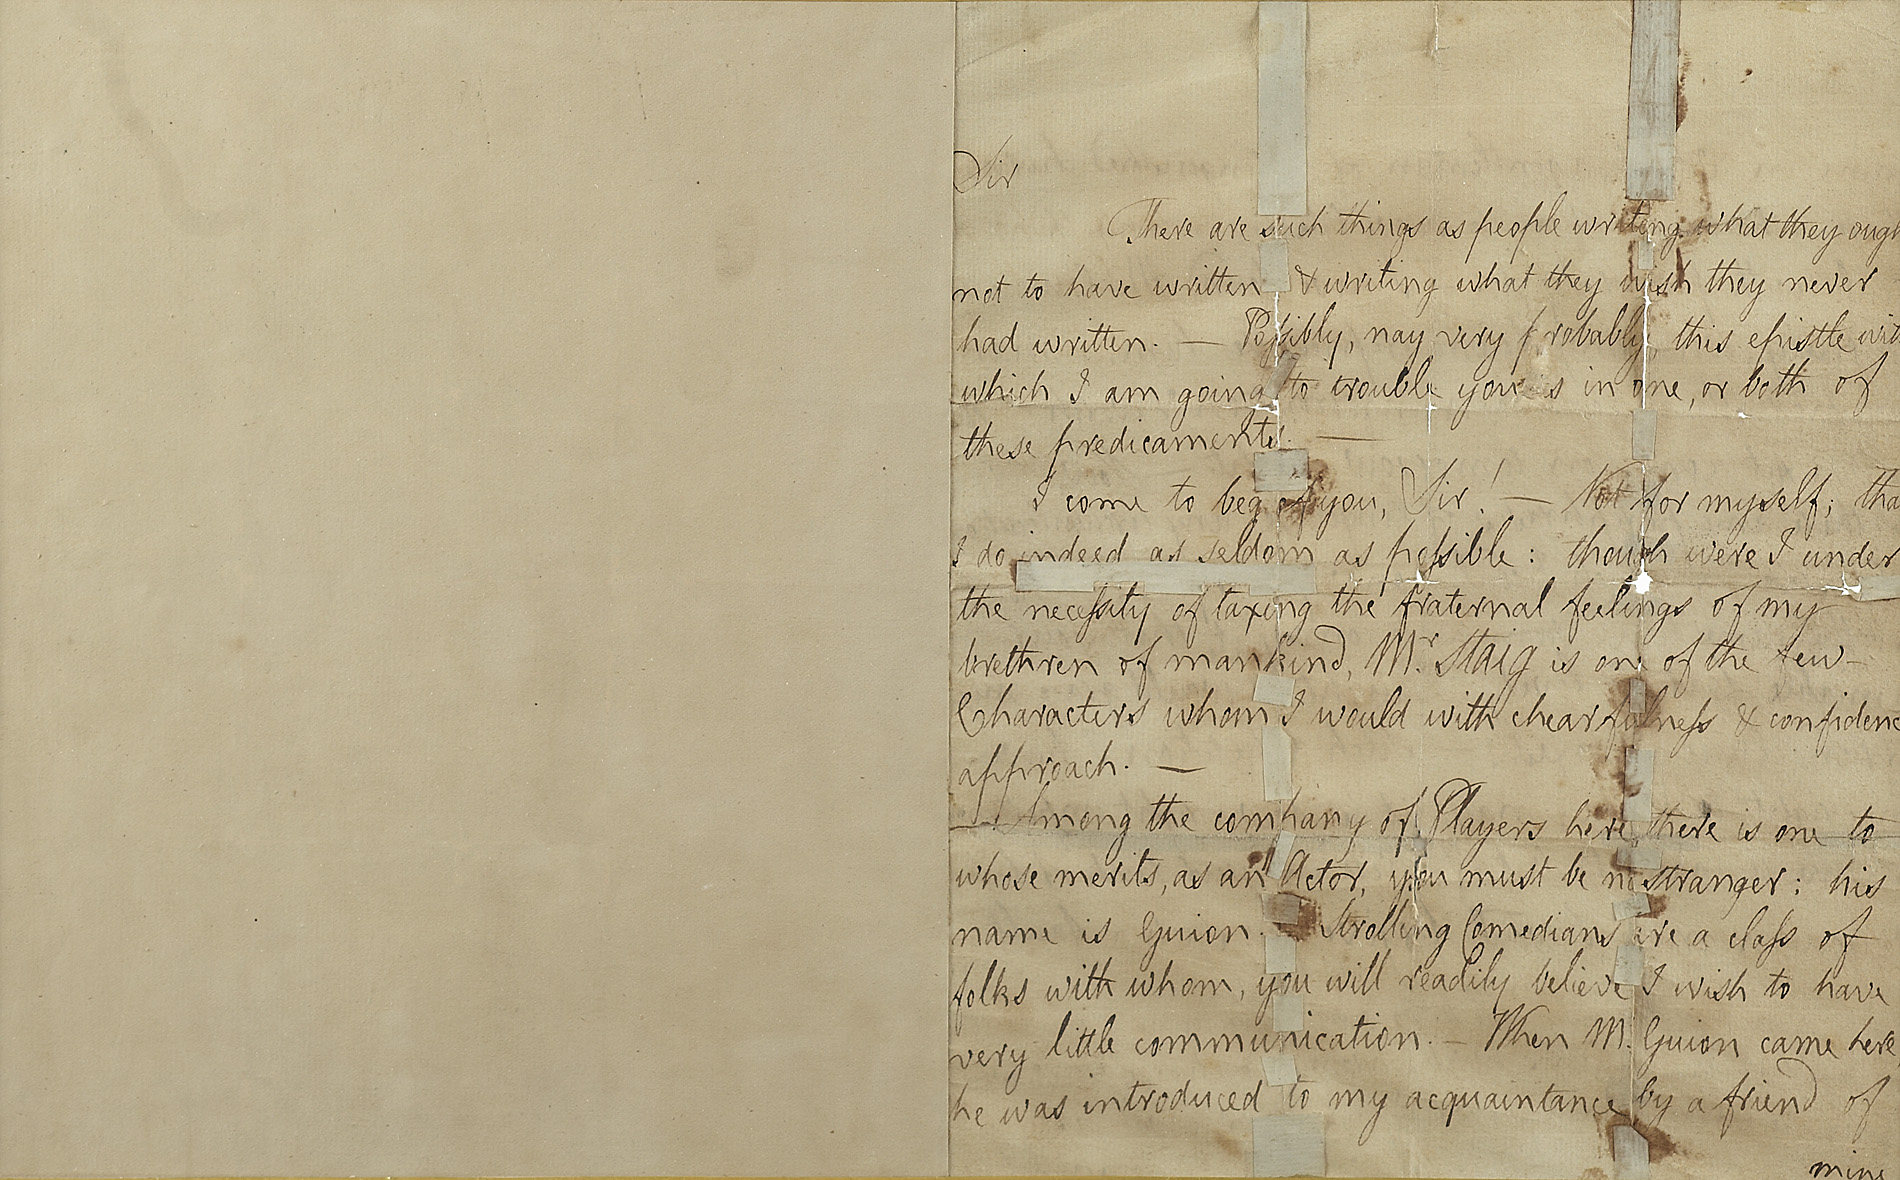 Sir
There are such things as people writing what they ough
not to have written & writing what they wish they never
had written. — Possibly, nay very probably, this epistle wit
which I am going to trouble you is in one, or both of
these predicaments. —
I come to beg of you, Sir! — Not for myself; tha
I do indeed as seldom as possible: though were I under
the necessity of taxing the fraternal feelings of my
brethren of mankind, Mr Staig is one of the few
Characters whom I would with chearfulness & confidenc
approach. —
— Among the company of Players here, there is one to
whose merits, as an Actor, you must be no stranger: his
name is Guion. Strolling Comedians are a class of
folks with whom, you will readily believe I wish to have
very little communication. — When M. Guion came here,
he was introduced to my acquaintance by a friend of
mine